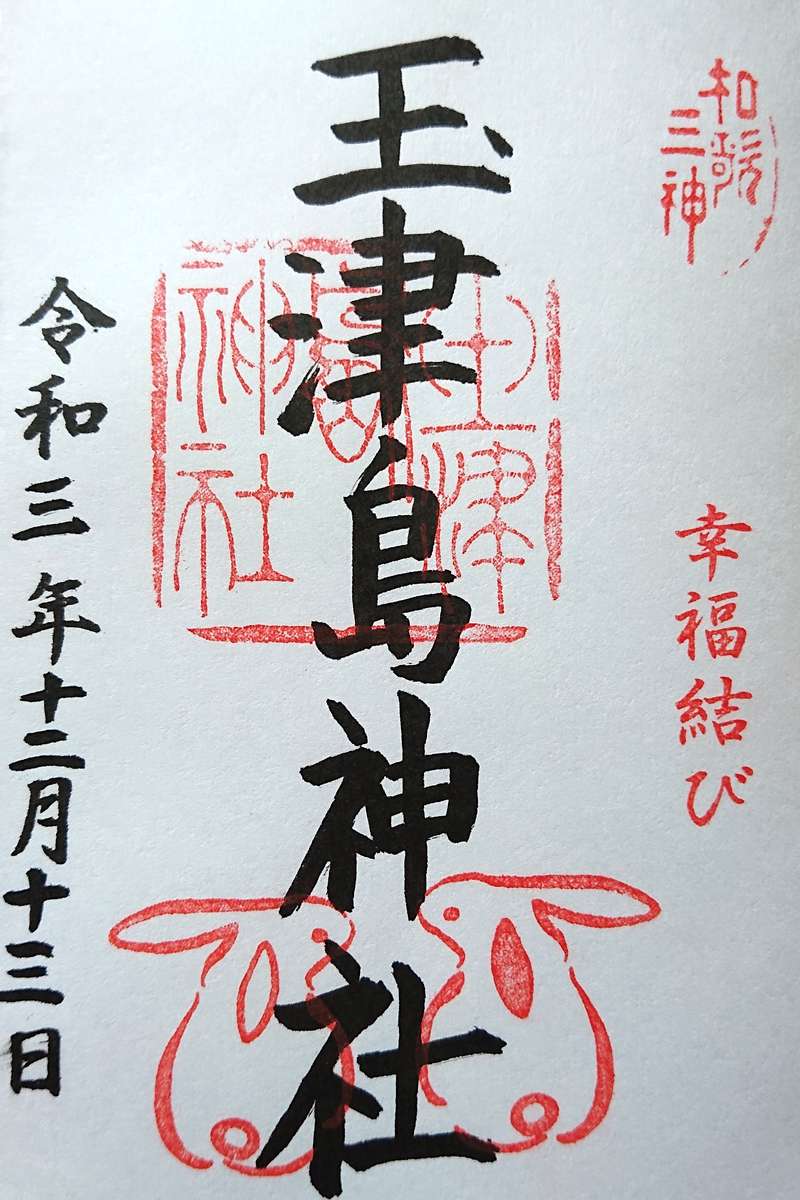 和歌
三神
幸福結び
玉津島神社
玉津
嶋
神社
令和三年十二月十三日